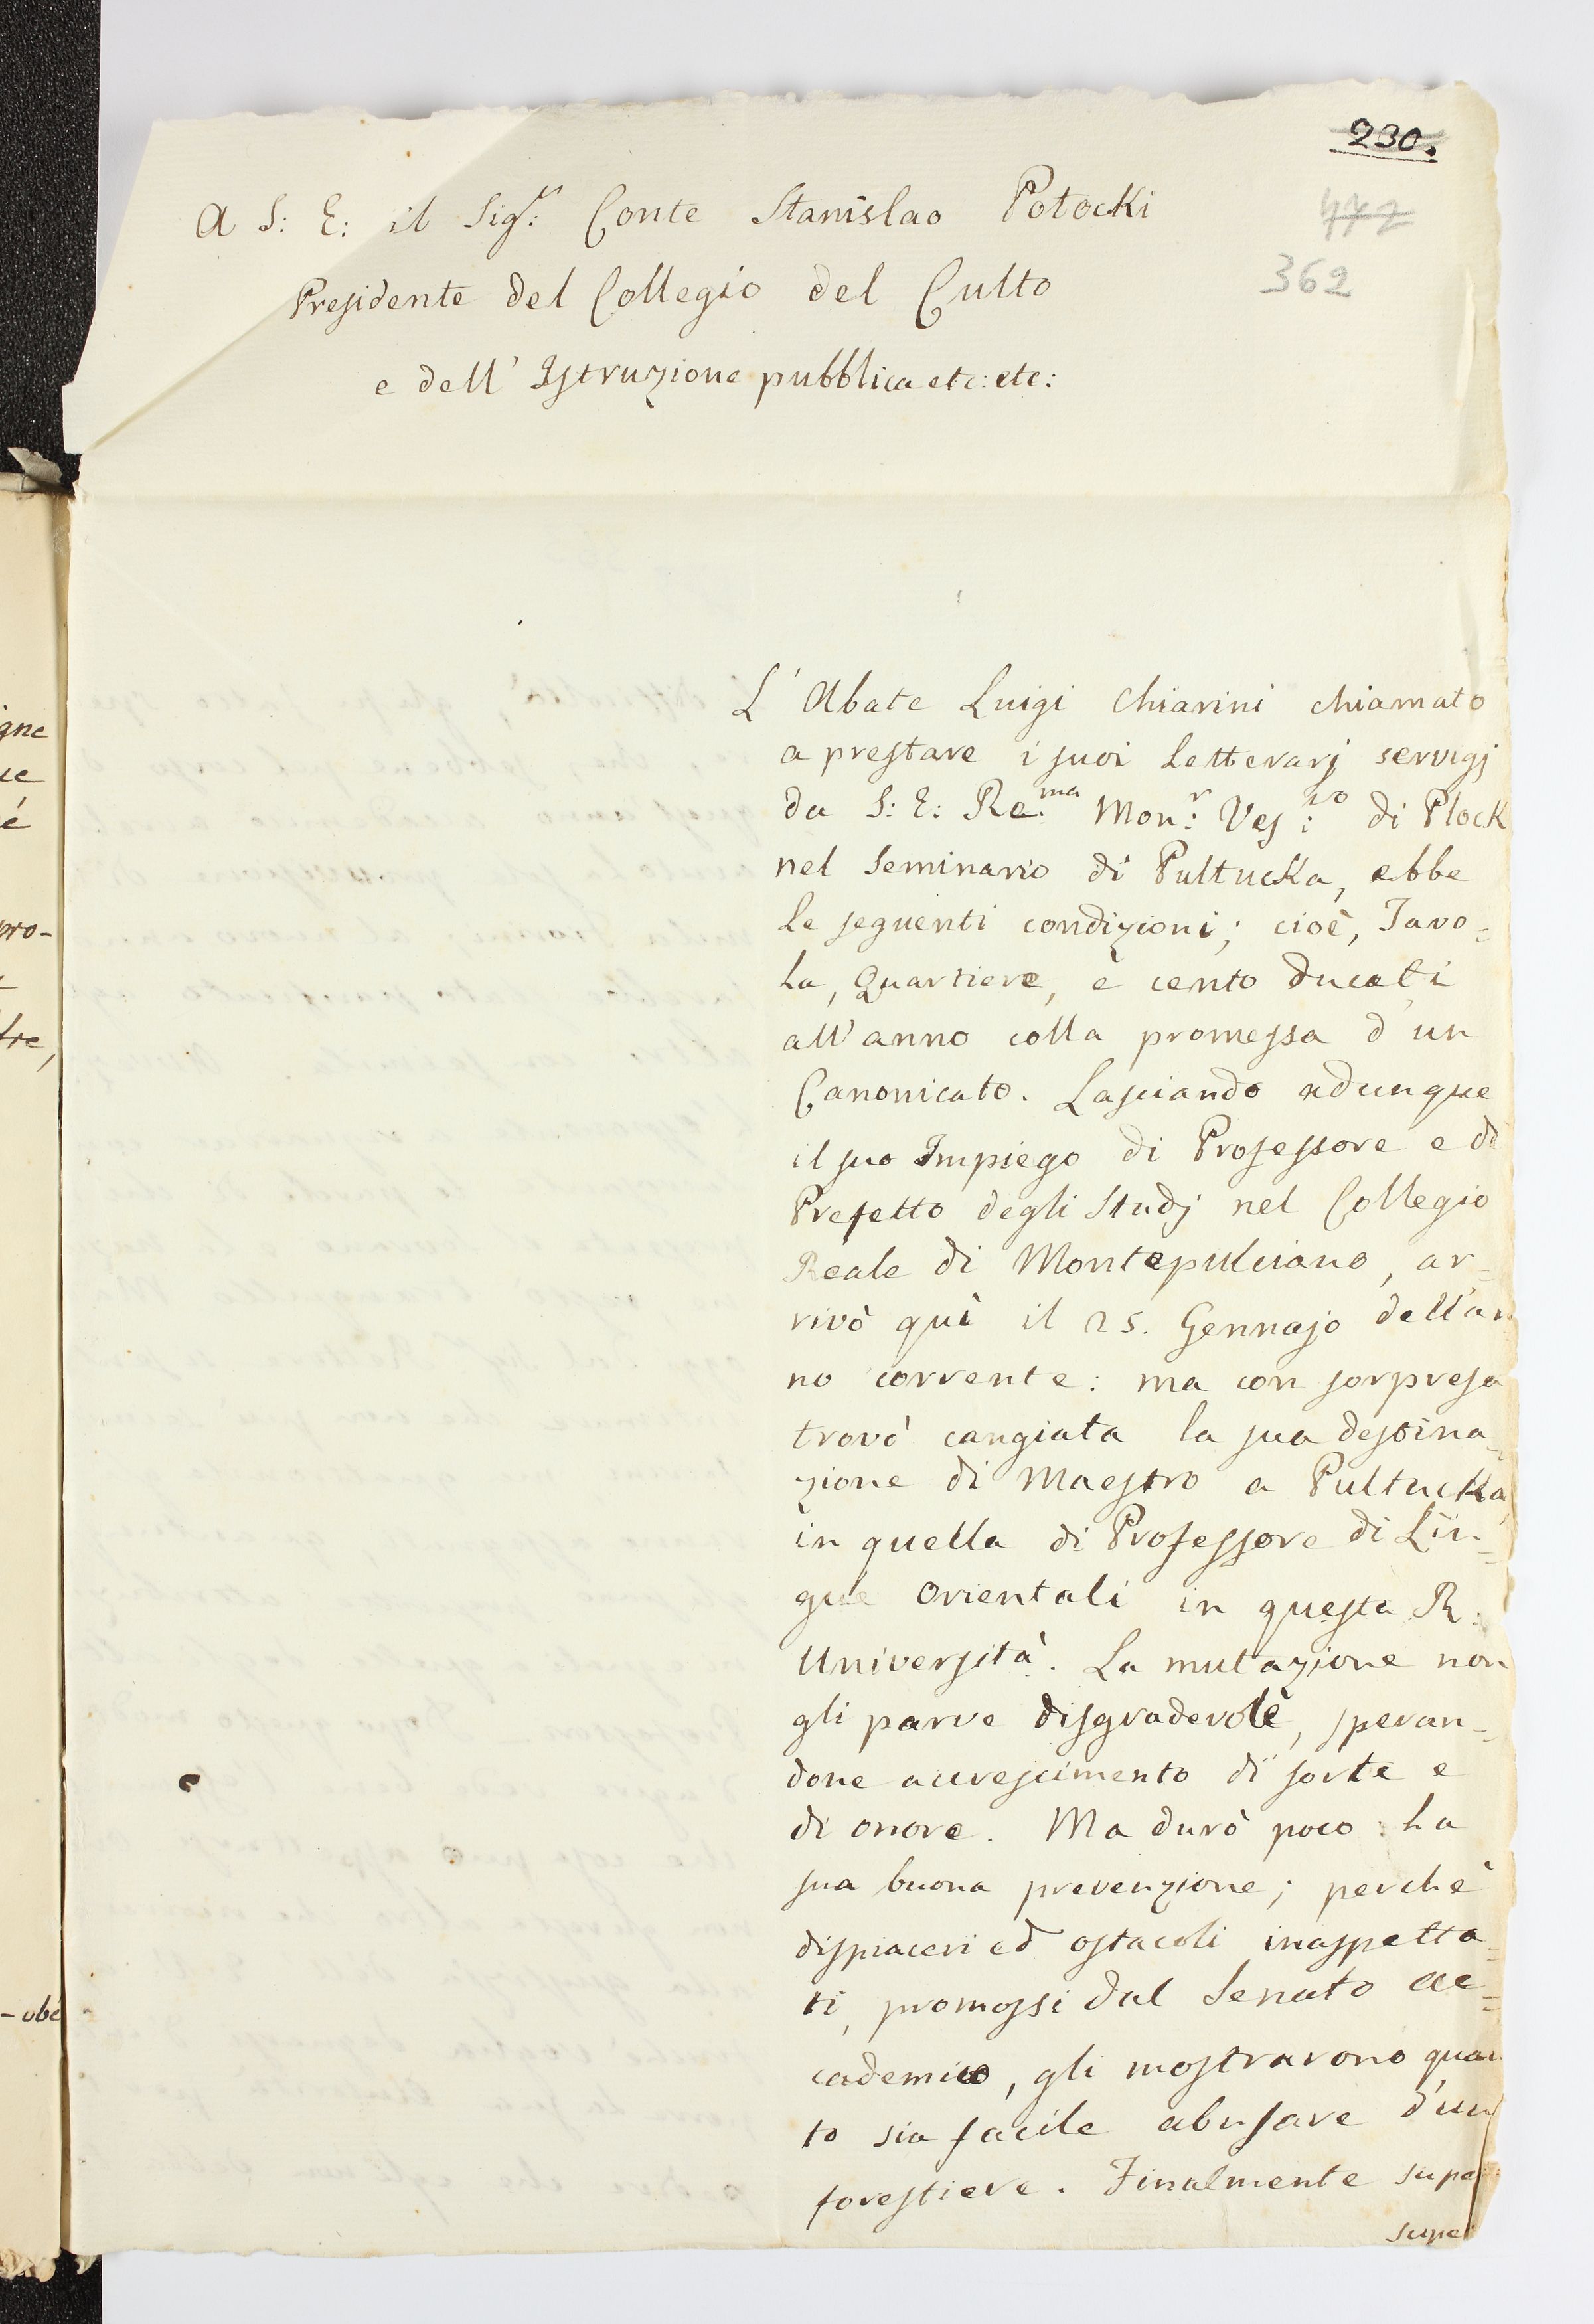 230.
A S: E: il Sig.r: Conte Stanislao Potocki
472
Presidente del Collegio del Culto
362
e dell' Istruzione pubblica etc: etc:
L'Abate Luigi Chiarini chiamato
a prestare i suoi Letterarj servigj
da S: E: Re.ma Mon:r Ves:vo di Plock
nel Seminario di Pultucka, ebbe
le seguenti condizioni; cioè, Tavo=
la, Quartiere, e cento Ducati
all'anno colla promessa d'un
Canonicato. Lasciando adunque
il suo Impiego di Professore e di
Prefetto degli Studj nel Collegio
Reale di Montepulciano, ar=
rivò quì il 25. Gennajo dell'an
no corrente: ma con sorpresa
trovò cangiata la sua destina=
zione di Maestro a Pultucka,
in quella di Professore di Lin=
gue Orientali in questa R:
Università. La mutazione non
gli parve disgradevole, speran=
done accrescimento di sorte e
di onore. Ma durò poco la
sua buona prevenzione; perchè
dispiaceri ed ostacoli inaspetta=
ti, promossi dal Senato ac=
cademico, gli mostrarono quan
to sia facile abusare d'un
forestiere. Finalmente supe
supe
igne
ue
é
pro-
tre,
-obé